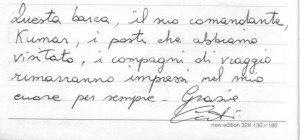 Questa barca, il suo comandante,
Kumar, i posti che abbiamo
visitato, i compagni di viaggio
rimarranno impressi nel mio
cuore per sempre. Grazie
new edition 32K 130×186